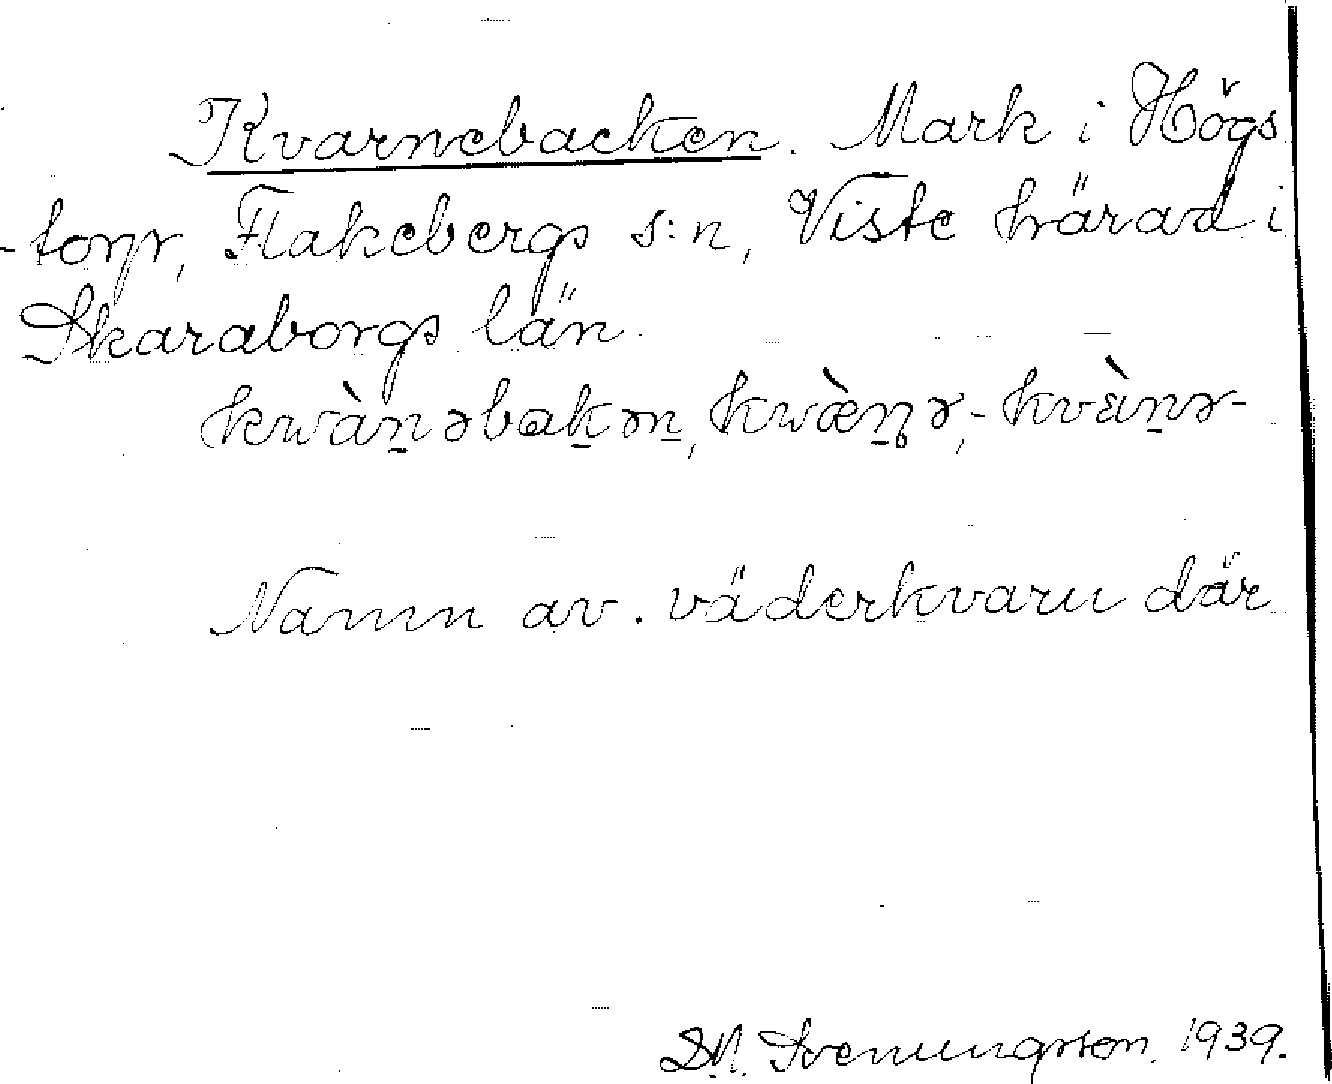 Kvarnebacken. Mark i Högs
-torp, Flakebergs s:n, Viste härad i
Skaraborgs län.
kwàn̠əbak̠ən̠, kwæ̀n̠ə,- kvàn̠ə-
Namn av. väderkvarn där
D.N. Svenungsson. 1939.